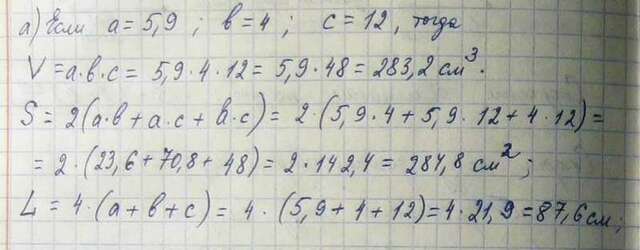 а) Если a = 5,9 ; b = 4 ; c = 12, тогда
V = a·b·c = 5,9·4·12 = 5,9·48 = 283,2 см³.
S = 2(a·b + a·c + b·c) = 2·(5,9·4 + 5,9·12 + 4·12) =
= 2·(23,6 + 70,8 + 48) = 2·142,4 = 284,8 см²;
L = 4·(a + b + c) = 4·(5,9 + 4 + 12) = 4·21,9 = 87,6 см;